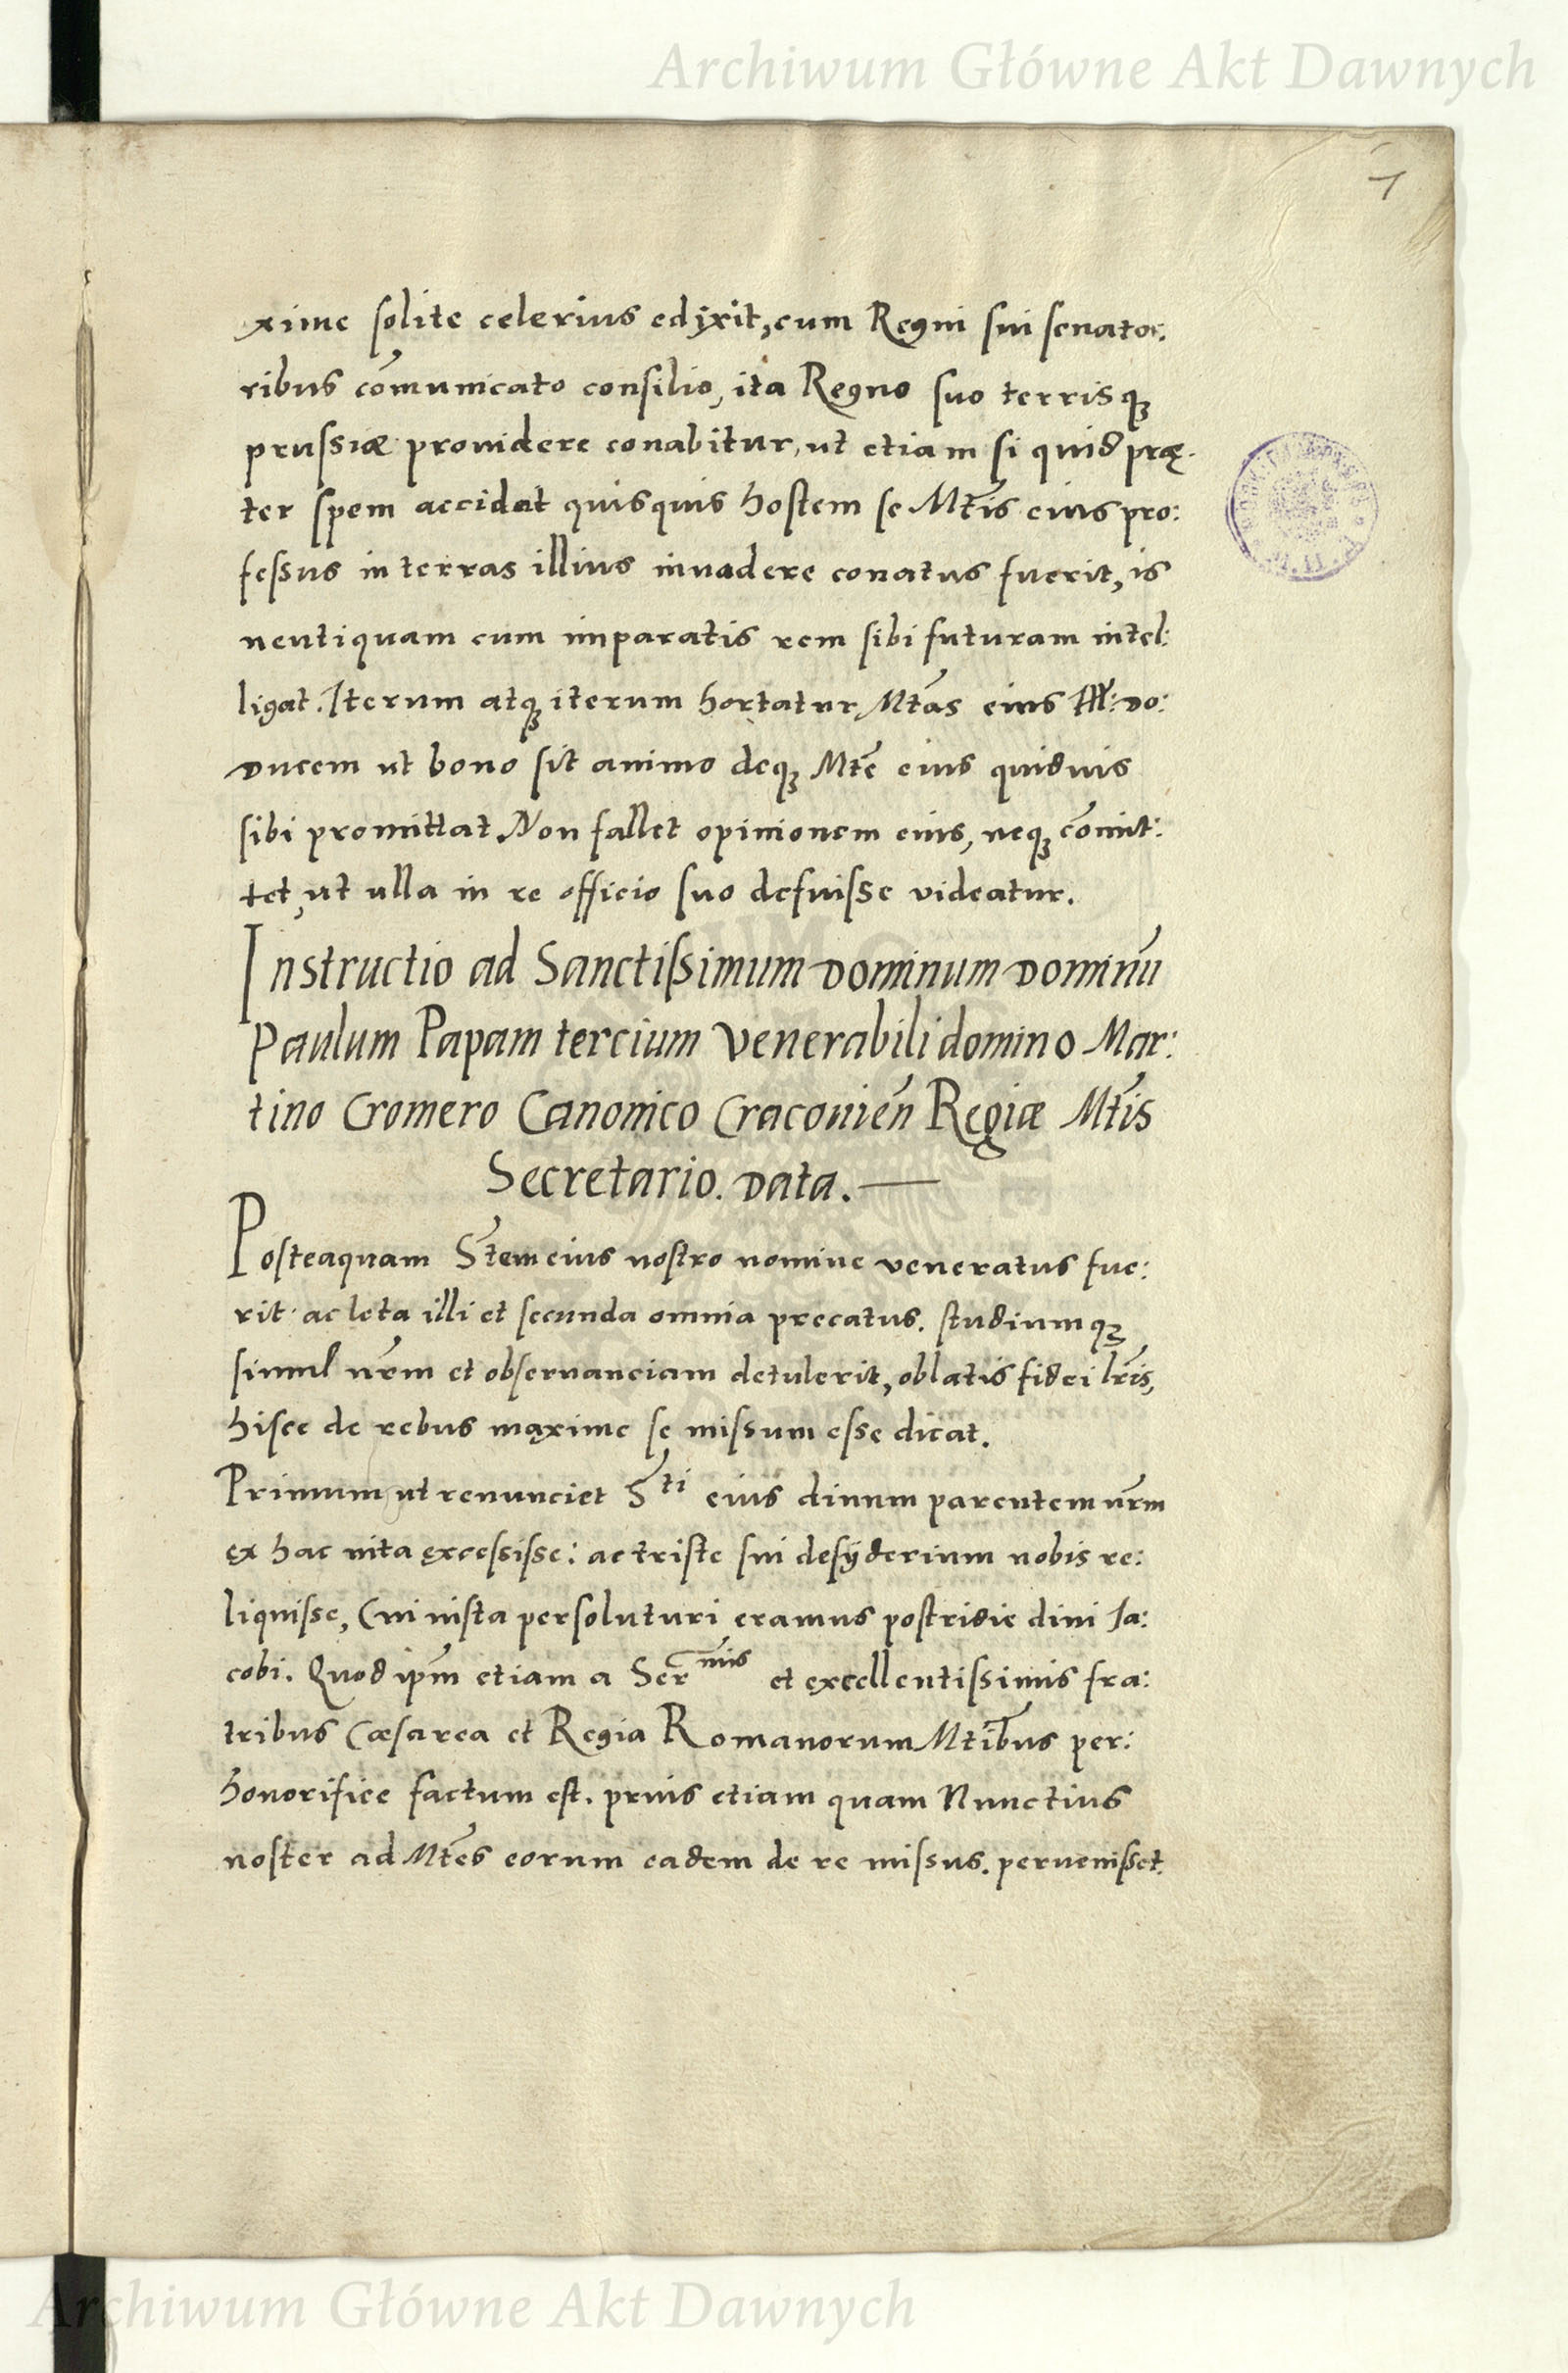 Archiwum Główne Akt Dawnych
7
xime solite celerius edixit, cum Regni sui senato:
ribus cōmunicato consilio, ita Regno suo terrisq;
prussiæ prouidere conabitur, ut etiam si quid prę-
ter spem accidat quisquis hostem se Mt̄is eius pro:
fessus in terras illius inuadere conatus fuerit, is
neutiquam cum imparatis rem sibi futuram intel:
ligat. Iterum atq; iterum hortatur Mt̄as eius Ill: do:
ducem ut bono sit animo deq; Mt̄e eius quiduis
sibi promittat. Non fallet opinionem eius, neq; cōmit:
tet, ut ulla in re officio suo defuisse videatur.
Instructio ad Sanctissimum dominum dominū
Paulum Papam tercium venerabili domino Mar:
tino Cromero Canonico Cracouien̄ Regiæ Mt̄is
Secretario. data.
Posteaquam St̄em eius nostro nomine veneratus fue:
rit ac leta illi et secunda omnia precatus. studiumq;
simul nr̄m et obseruanciam detulerit, oblatis fidei lr̄is,
hisce de rebus maxime se missum esse dicat.
Primum ut renunciet S^ti eius diuum parentem nr̄m
ex hac uita excessisse: ac triste sui desyderium nobis re:
liquisse, Cui iusta persoluturi eramus postridie diui Ja:
cobi. Quod ip̄m etiam a Ser^mis et excellentissimis fra:
tribus Cæsarea et Regia Romanorum Mtib̄us per:
honorifice factum est. prius etiam quam Nunctius
noster ad Mt̄es eorum eadem de re missus. peruenisset.
Archiwum Główne Akt Dawnych